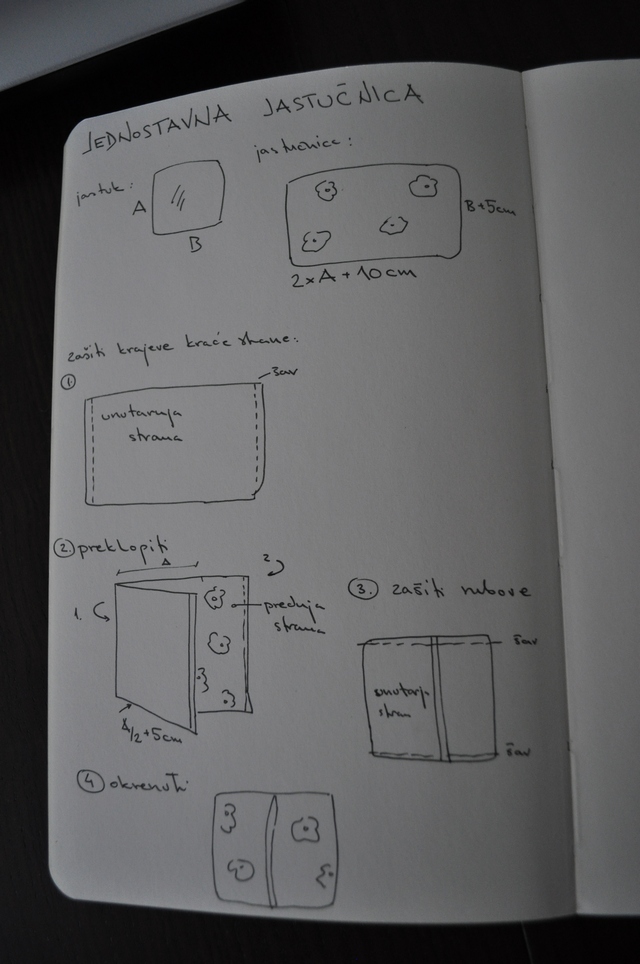 JEDNOSTAVNA JASTUČNICA
jastuk:
A
B
jastučnica:
B+5cm
2xA+10cm
zašiti krajeve kraće strane:
1.
šav
unutarnja
strana
2. preklopiti
A
1.
2
prednja
strana
A/2+5cm
3. zašiti rubove
šav
unutarnja
strana
šav
4 okrenuti